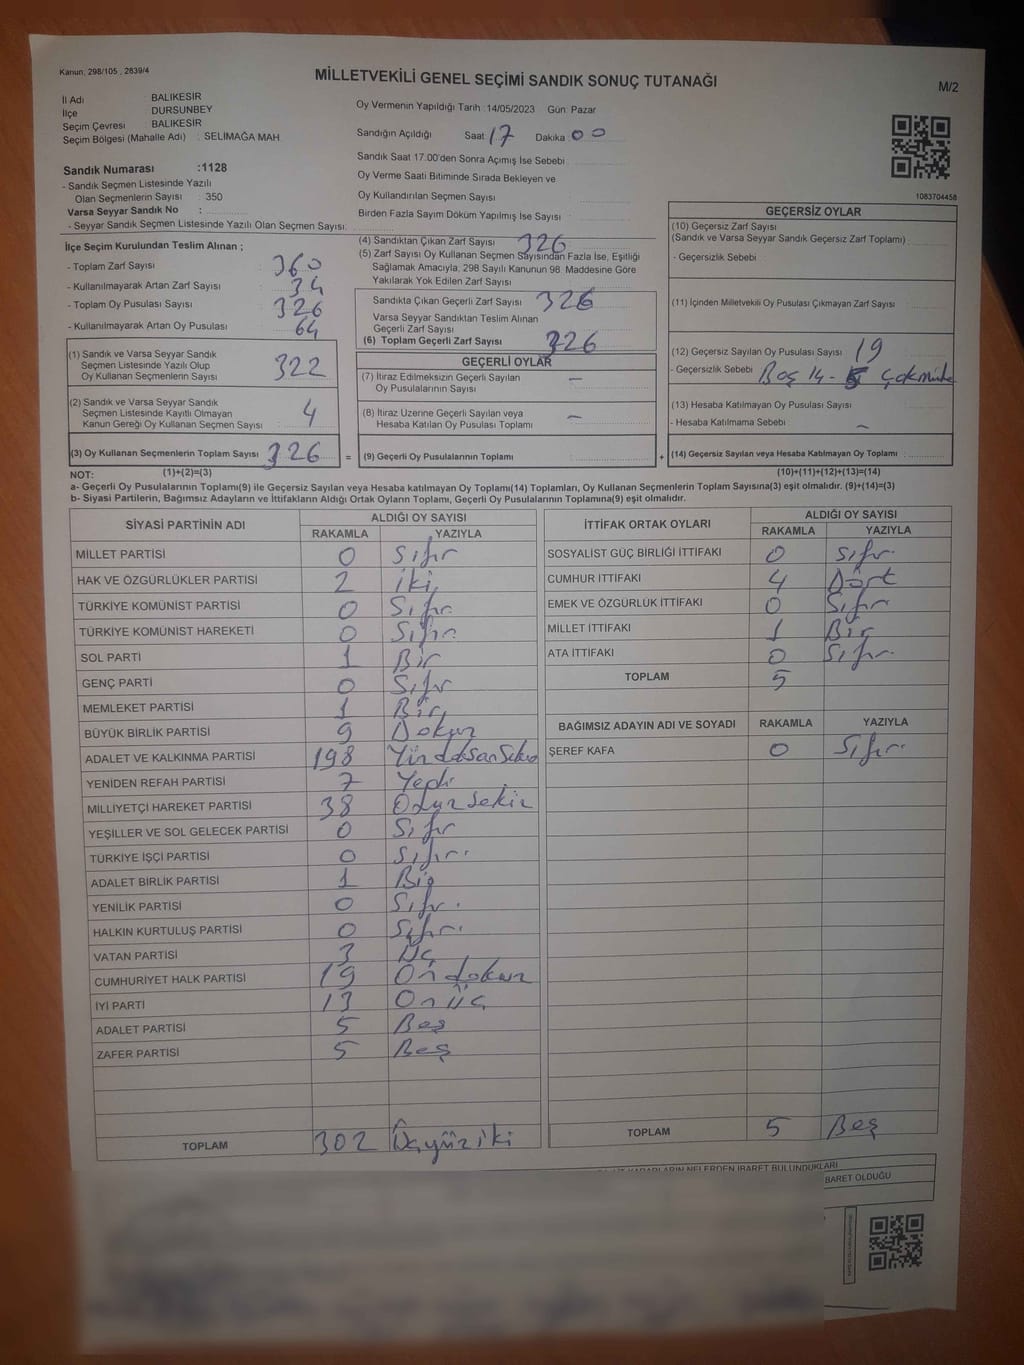 Kanun, 298/105 , 2839/4
MİLLETVEKİLİ GENEL SEÇİMİ SANDIK SONUÇ TUTANAĞI
M/2
İl Adı BALIKESİR
İlçe DURSUNBEY
Seçim Çevresi BALIKESİR
Seçim Bölgesi (Mahalle Adı) : SELİMAĞA MAH.
Oy Vermenin Yapıldığı Tarih : 14/05/2023 Gün : Pazar
Sandığın Açıldığı Saat 17 Dakika 00
Sandık Saat 17.00'den Sonra Açımış İse Sebebi
Oy Verme Saati Bitiminde Sırada Bekleyen ve
Oy Kullandırılan Seçmen Sayısı
Birden Fazla Sayım Döküm Yapılmış İse Sayısı :
1083704458
Sandık Numarası :1128
- Sandık Seçmen Listesinde Yazılı
Olan Seçmenlerin Sayısı : 350
Varsa Seyyar Sandık No :
- Seyyar Sandık Seçmen Listesinde Yazılı Olan Seçmen Sayısı:
İlçe Seçim Kurulundan Teslim Alınan ;
- Toplam Zarf Sayısı : 360
- Kullanılmayarak Artan Zarf Sayısı : 34
- Toplam Oy Pusulası Sayısı : 326
- Kullanılmayarak Artan Oy Pusulası : 64
(1) Sandık ve Varsa Seyyar Sandık
Seçmen Listesinde Yazılı Olup
Oy Kullanan Seçmenlerin Sayısı : 322
(2) Sandık ve Varsa Seyyar Sandık
Seçmen Listesinde Kayıtlı Olmayan
Kanun Gereği Oy Kullanan Seçmen Sayısı : 4
(3) Oy Kullanan Seçmenlerin Toplam Sayısı : 326
(4) Sandıktan Çıkan Zarf Sayısı 326
(5) Zarf Sayısı Oy Kullanan Seçmen Sayısından Fazla İse, Eşitliği
Sağlamak Amacıyla, 298 Sayılı Kanunun 98. Maddesine Göre
Yakılarak Yok Edilen Zarf Sayısı :
Sandıkta Çıkan Geçerli Zarf Sayısı : 326
Varsa Seyyar Sandıktan Teslim Alınan
Geçerli Zarf Sayısı :
(6) Toplam Geçerli Zarf Sayısı : 326
GEÇERLİ OYLAR
(7) İtiraz Edilmeksizin Geçerli Sayılan
Oy Pusulalarının Sayısı : –
(8) İtiraz Üzerine Geçerli Sayılan veya
Hesaba Katılan Oy Pusulası Toplamı : –
= (9) Geçerli Oy Pusulalarının Toplamı :
GEÇERSİZ OYLAR
(10) Geçersiz Zarf Sayısı
(Sandık ve Varsa Seyyar Sandık Geçersiz Zarf Toplamı)
- Geçersizlik Sebebi :
(11) İçinden Milletvekili Oy Pusulası Çıkmayan Zarf Sayısı :
(12) Geçersiz Sayılan Oy Pusulası Sayısı : 19
- Geçersizlik Sebebi : Boş 14 - 5
(13) Hesaba Katılmayan Oy Pusulası Sayısı :
- Hesaba Katılmama Sebebi : –
+ (14) Geçersiz Sayılan veya Hesaba Katılmayan Oy Toplamı :
NOT: (1)+(2)=(3) (10)+(11)+(12)+(13)=(14)
a- Geçerli Oy Pusulalarının Toplamı(9) ile Geçersiz Sayılan veya Hesaba katılmayan Oy Toplamı(14) Toplamları, Oy Kullanan Seçmenlerin Toplam Sayısına(3) eşit olmalıdır. (9)+(14)=(3)
b- Siyasi Partilerin, Bağımsız Adayların ve İttifakların Aldığı Ortak Oyların Toplamı, Geçerli Oy Pusulalarının Toplamına(9) eşit olmalıdır.
SİYASİ PARTİNİN ADI ALDIĞI OY SAYISI
RAKAMLA YAZIYLA
MİLLET PARTİSİ 0 Sıfır
HAK VE ÖZGÜRLÜKLER PARTİSİ 2 İki
TÜRKİYE KOMÜNİST PARTİSİ 0 Sıfır
TÜRKİYE KOMÜNİST HAREKETİ 0 Sıfır
SOL PARTİ 1 Bir
GENÇ PARTİ 0 Sıfır
MEMLEKET PARTİSİ 1 Bir
BÜYÜK BİRLİK PARTİSİ 9 Dokuz
ADALET VE KALKINMA PARTİSİ 198
YENİDEN REFAH PARTİSİ 7 Yedi
MİLLİYETÇİ HAREKET PARTİSİ 38 Otuzsekiz
YEŞİLLER VE SOL GELECEK PARTİSİ 0 Sıfır
TÜRKİYE İŞÇİ PARTİSİ 0 Sıfır
ADALET BİRLİK PARTİSİ 1 Bir
YENİLİK PARTİSİ 0 Sıfır
HALKIN KURTULUŞ PARTİSİ 0 Sıfır
VATAN PARTİSİ 3 Üç
CUMHURİYET HALK PARTİSİ 19 Ondokuz
İYİ PARTİ 13 Onüç
ADALET PARTİSİ 5 Beş
ZAFER PARTİSİ 5 Beş
TOPLAM 302 Üçyüziki
İTTİFAK ORTAK OYLARI ALDIĞI OY SAYISI
RAKAMLA YAZIYLA
SOSYALİST GÜÇ BİRLİĞİ İTTİFAKI 0 Sıfır
CUMHUR İTTİFAKI 4 Dört
EMEK VE ÖZGÜRLÜK İTTİFAKI 0 Sıfır
MİLLET İTTİFAKI 1 Bir
ATA İTTİFAKI 0 Sıfır
TOPLAM 5
BAĞIMSIZ ADAYIN ADI VE SOYADI RAKAMLA YAZIYLA
ŞEREF KAFA 0 Sıfır
TOPLAM 5 Beş
KARARLARIN NELERDEN İBARET BULUNDUKLARI
BARET OLDUĞU